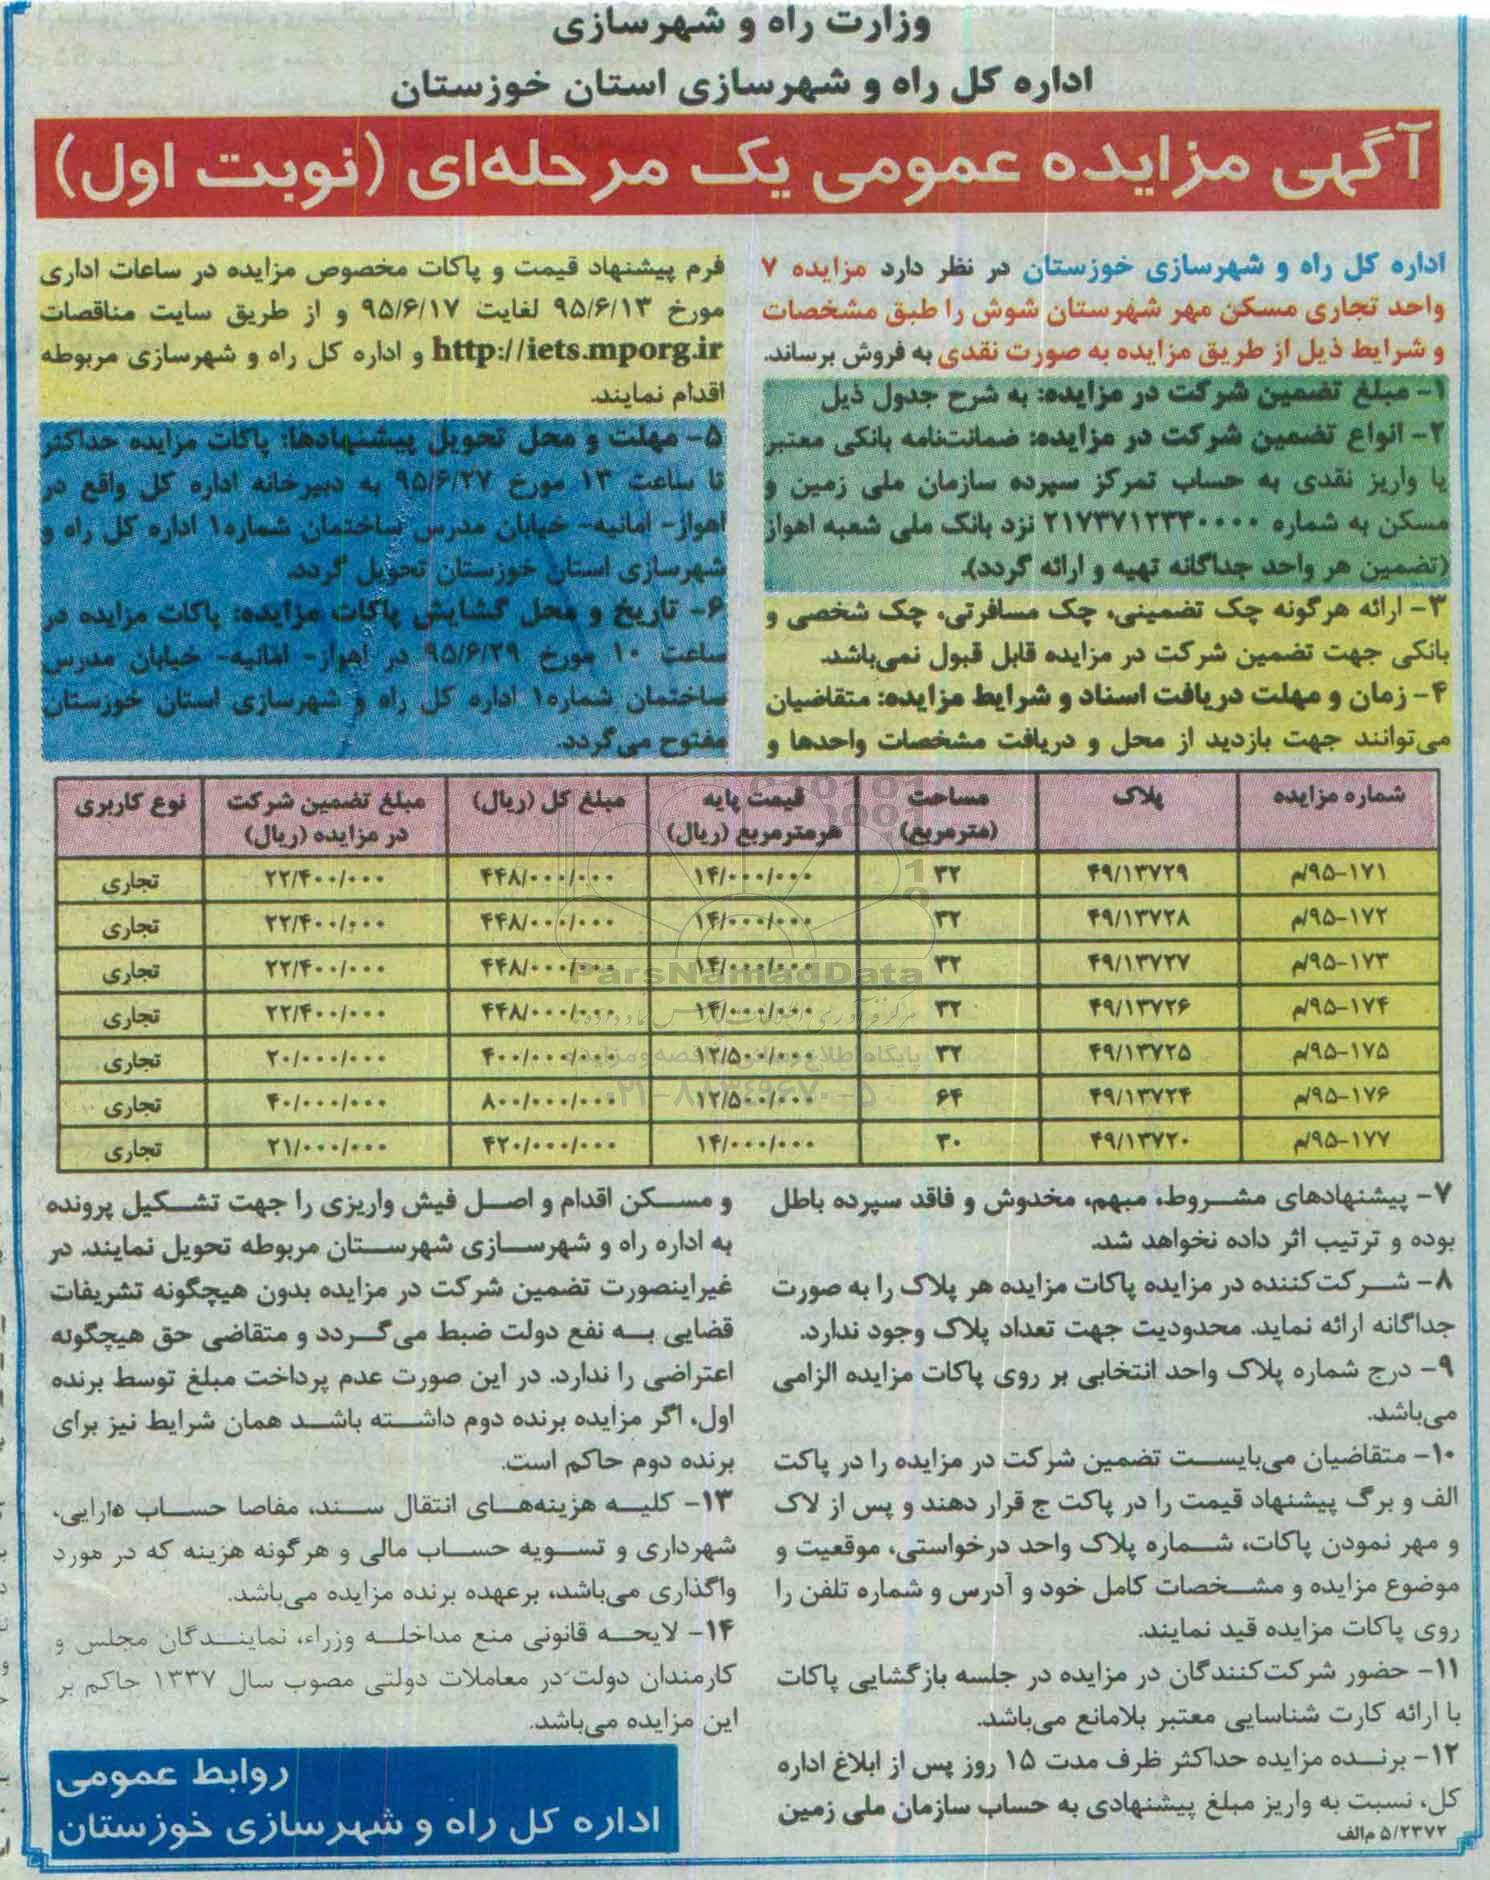 وزارت راه و شهرسازی
اداره کل راه و شهرسازی استان خوزستان
آگهی مزایده عمومی یک مرحله‌ای (نوبت اول)
اداره کل راه و شهرسازی خوزستان در نظر دارد مزایده ۷
واحد تجاری مسکن مهر شهرستان شوش را طبق مشخصات
و شرایط ذیل از طریق مزایده به صورت نقدی به فروش برساند.
۱- مبلغ تضمین شرکت در مزایده: به شرح جدول ذیل
۲- انواع تضمین شرکت در مزایده: ضمانت‌نامه بانکی معتبر
یا واریز نقدی به حساب تمرکز سپرده سازمان ملی زمین و
مسکن به شماره ۲۱۷۳۷۱۲۳۳۰۰۰۰ نزد بانک ملی شعبه اهواز
(تضمین هر واحد جداگانه تهیه و ارائه گردد).
۳- ارائه هرگونه چک تضمینی، چک مسافرتی، چک شخصی و
بانکی جهت تضمین شرکت در مزایده قابل قبول نمی‌باشد.
۴- زمان و مهلت دریافت اسناد و شرایط مزایده: متقاضیان
می‌توانند جهت بازدید از محل و دریافت مشخصات واحدها و
فرم پیشنهاد قیمت و پاکات مخصوص مزایده در ساعات اداری
مورخ ۹۵/۶/۱۳ لغایت ۹۵/۶/۱۷ و از طریق سایت مناقصات
http://iets.mporg.ir و اداره کل راه و شهرسازی مربوطه
اقدام نمایند.
۵- مهلت و محل تحویل پیشنهادها: پاکات مزایده حداکثر
تا ساعت ۱۳ مورخ ۹۵/۶/۲۷ به دبیرخانه اداره کل واقع در
اهواز- امانیه- خیابان مدرس ساختمان شماره۱ اداره کل راه و
شهرسازی استان خوزستان تحویل گردد.
۶- تاریخ و محل گشایش پاکات مزایده: پاکات مزایده در
ساعت ۱۰ مورخ ۹۵/۶/۲۹ در اهواز- امانیه- خیابان مدرس
ساختمان شماره۱ اداره کل راه و شهرسازی استان خوزستان
مفتوح می‌گردد.
شماره مزایده پلاک مساحت (مترمربع) قیمت پایه هرمترمربع (ریال) مبلغ کل (ریال) مبلغ تضمین شرکت در مزایده (ریال) نوع کاربری
۹۵-۱۷۱/م ۴۹/۱۳۷۲۹ ۳۲ ۱۴/۰۰۰/۰۰۰ ۴۴۸/۰۰۰/۰۰۰ ۲۲/۴۰۰/۰۰۰ تجاری
۹۵-۱۷۲/م ۴۹/۱۳۷۲۸ ۳۲ ۱۴/۰۰۰/۰۰۰ ۴۴۸/۰۰۰/۰۰۰ ۲۲/۴۰۰/۰۰۰ تجاری
۹۵-۱۷۳/م ۴۹/۱۳۷۲۷ ۳۲ ۱۴/۰۰۰/۰۰۰ ۴۴۸/۰۰۰/۰۰۰ ۲۲/۴۰۰/۰۰۰ تجاری
۹۵-۱۷۴/م ۴۹/۱۳۷۲۶ ۳۲ ۱۴/۰۰۰/۰۰۰ ۴۴۸/۰۰۰/۰۰۰ ۲۲/۴۰۰/۰۰۰ تجاری
۹۵-۱۷۵/م ۴۹/۱۳۷۲۵ ۳۲ ۱۲/۵۰۰/۰۰۰ ۴۰۰/۰۰۰/۰۰۰ ۲۰/۰۰۰/۰۰۰ تجاری
۹۵-۱۷۶/م ۴۹/۱۳۷۲۴ ۶۴ ۱۲/۵۰۰/۰۰۰ ۸۰۰/۰۰۰/۰۰۰ ۴۰/۰۰۰/۰۰۰ تجاری
۹۵-۱۷۷/م ۴۹/۱۳۷۲۰ ۳۰ ۱۴/۰۰۰/۰۰۰ ۴۲۰/۰۰۰/۰۰۰ ۲۱/۰۰۰/۰۰۰ تجاری
ParsNamadData
۷- پیشنهادهای مشروط، مبهم، مخدوش و فاقد سپرده باطل
بوده و ترتیب اثر داده نخواهد شد.
۸- شرکت‌کننده در مزایده پاکات مزایده هر پلاک را به صورت
جداگانه ارائه نماید. محدودیت جهت تعداد پلاک وجود ندارد.
۹- درج شماره پلاک واحد انتخابی بر روی پاکات مزایده الزامی
می‌باشد.
۱۰- متقاضیان می‌بایست تضمین شرکت در مزایده را در پاکت
الف و برگ پیشنهاد قیمت را در پاکت ج قرار دهند و پس از لاک
و مهر نمودن پاکات، شماره پلاک واحد درخواستی، موقعیت و
موضوع مزایده و مشخصات کامل خود و آدرس و شماره تلفن را
روی پاکات مزایده قید نمایند.
۱۱- حضور شرکت‌کنندگان در مزایده در جلسه بازگشایی پاکات
با ارائه کارت شناسایی معتبر بلامانع می‌باشد.
۱۲- برنده مزایده حداکثر ظرف مدت ۱۵ روز پس از ابلاغ اداره
کل، نسبت به واریز مبلغ پیشنهادی به حساب سازمان ملی زمین
۵/۲۳۷۲ م‌الف
و مسکن اقدام و اصل فیش واریزی را جهت تشکیل پرونده
به اداره راه و شهرسازی شهرستان مربوطه تحویل نمایند. در
غیراینصورت تضمین شرکت در مزایده بدون هیچگونه تشریفات
قضایی به نفع دولت ضبط می‌گردد و متقاضی حق هیچگونه
اعتراضی را ندارد. در این صورت عدم پرداخت مبلغ توسط برنده
اول، اگر مزایده برنده دوم داشته باشد همان شرایط نیز برای
برنده دوم حاکم است.
۱۳- کلیه هزینه‌های انتقال سند، مفاصا حساب دارایی،
شهرداری و تسویه حساب مالی و هرگونه هزینه که در مورد
واگذاری می‌باشد، برعهده برنده مزایده می‌باشد.
۱۴- لایحه قانونی منع مداخله وزراء، نمایندگان مجلس و
کارمندان دولت در معاملات دولتی مصوب سال ۱۳۳۷ حاکم بر
این مزایده می‌باشد.
روابط عمومی
اداره کل راه و شهرسازی خوزستان